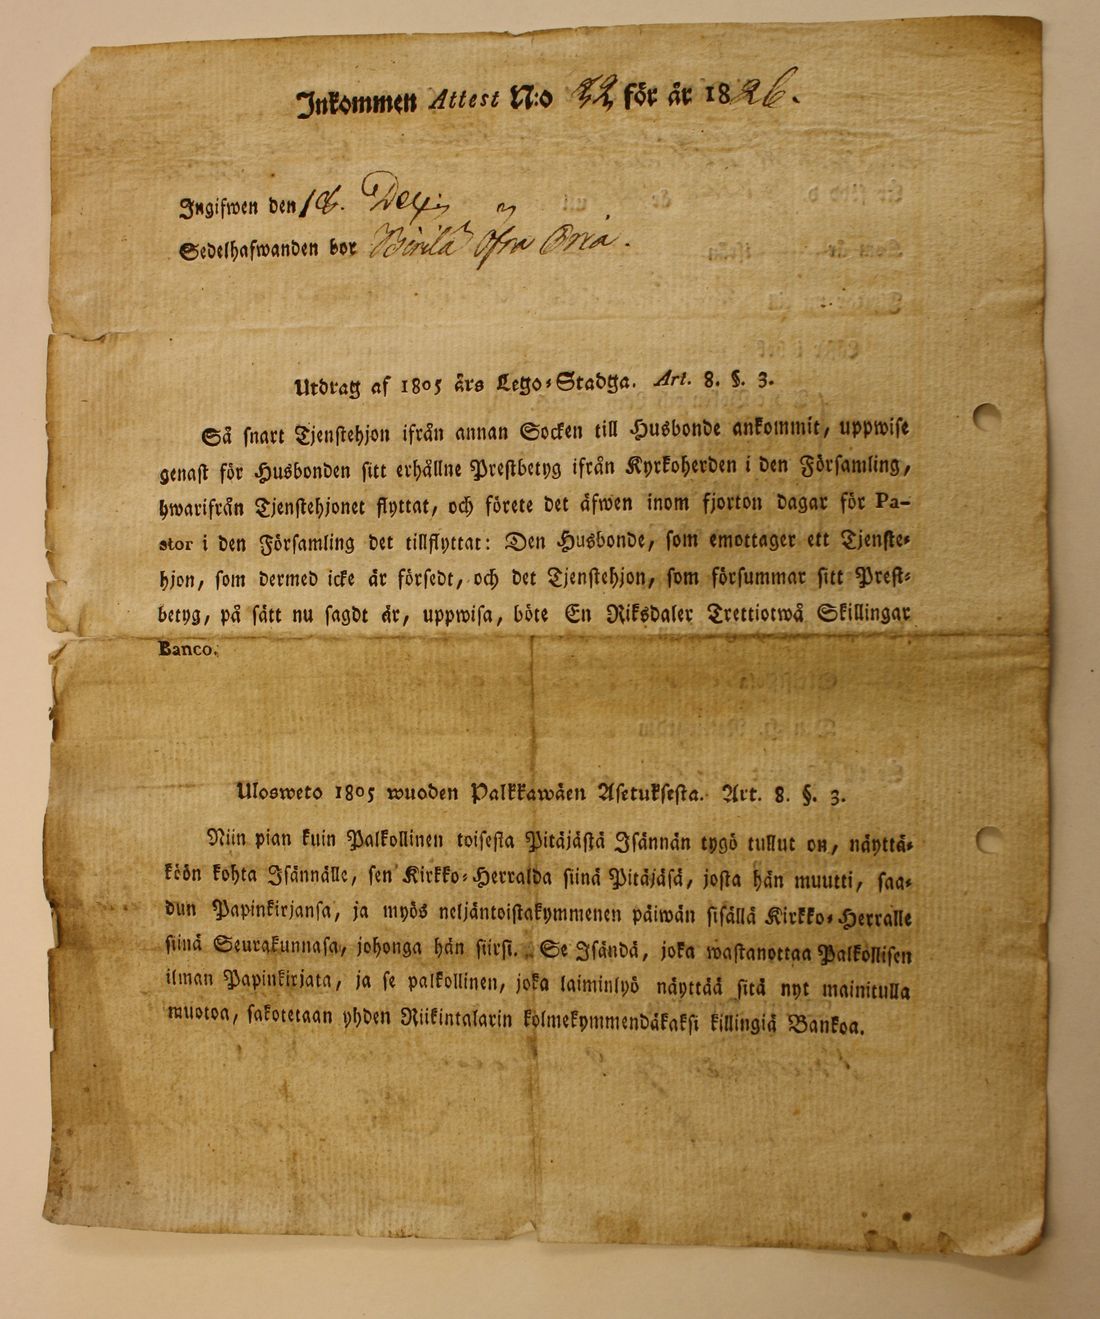 Inkommen Attest N:o 22 för år 1826.
Ingifwen den 18. Dec.
Sedelhafwanden bor Öfra
Utdrag af 1805 års Lego-Stadga. Art. 8. §. 3.
Så snart Tjenstehjon ifrån annan Socken till Husbonde ankommit, uppwise
genast för Husbonden sitt erhållne Prestbetyg ifrån Kyrkoherden i den Församling,
hwarifrån Tjenstehjonet flyttat, och förete det äfwen inom fjorton dagar för Pa-
stor i den Församling det tillflyttat: Den Husbonde, som emottager ett Tjenste-
hjon, som dermed icke är försedt, och det Tjenstehjon, som försummar sitt Prest-
betyg, på sätt nu sagdt är, uppwisa, böte En Riksdaler Trettiotwå Skillingar
Banco.
Ulosweto 1805 wuoden Palkkawäen Asetuksesta. Art. 8. §. 3.
Niin pian kuin Palkollinen toisesta Pitäjästä Isännän tygö tullut on, näyttä-
köön kohta Isännälle, sen Kirkko-Herralda siinä Pitäjäsä, josta hän muutti, saa-
dun Papinkirjansa, ja myös neljäntoistakymmenen päiwän sisällä Kirkko-Herralle
siinä Seurakunnasa, johonga hän siirsi. Se Isändä, joka wastanottaa Palkollisen
ilman Papinkirjata, ja se palkollinen, joka laiminlyö näyttää sitä nyt mainitulla
muotoa, sakotetaan yhden Riikintalarin kolmekymmendäkaksi killingiä Bankoa.